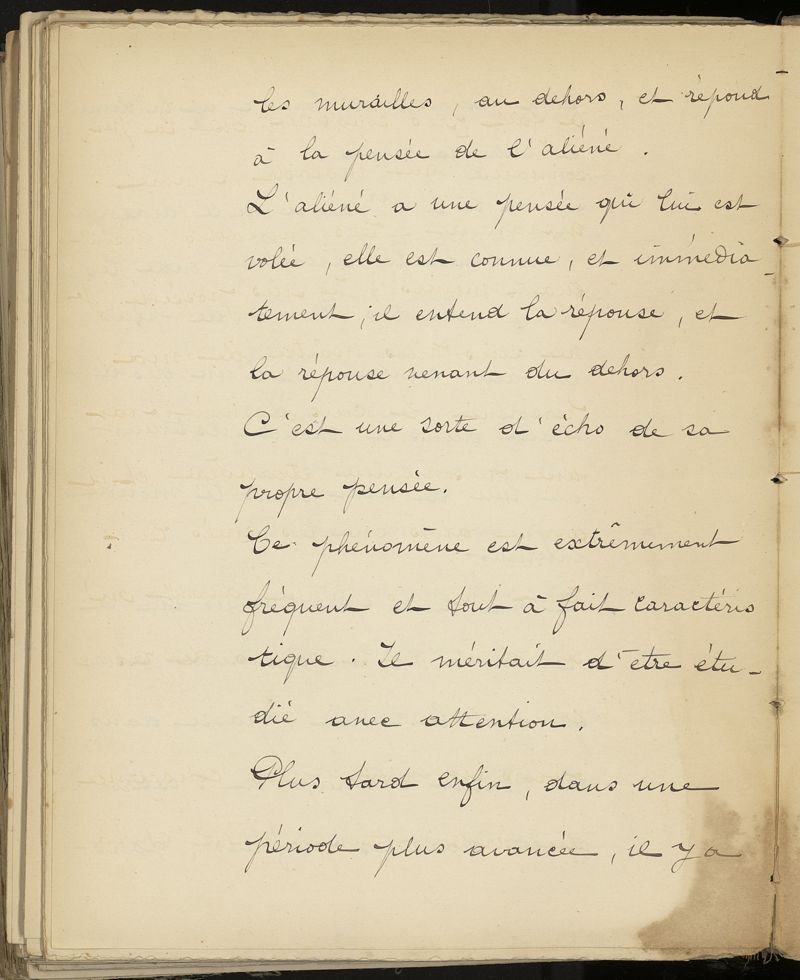 les murailles, au dehors, et répond
à la pensée de l'aliéné.
L'aliéné a une pensée qui lui est
volée, elle est connue, et immédia-
tement, il entend la réponse, et
la réponse venant du dehors.
C'est une sorte d'écho de sa
propre pensée.
Ce phénomène est extrêmement
fréquent et tout à fait caractéris
tique. Il méritait d'être étu-
dié avec attention.
Plus tard enfin, dans une
période plus avancée, il y a